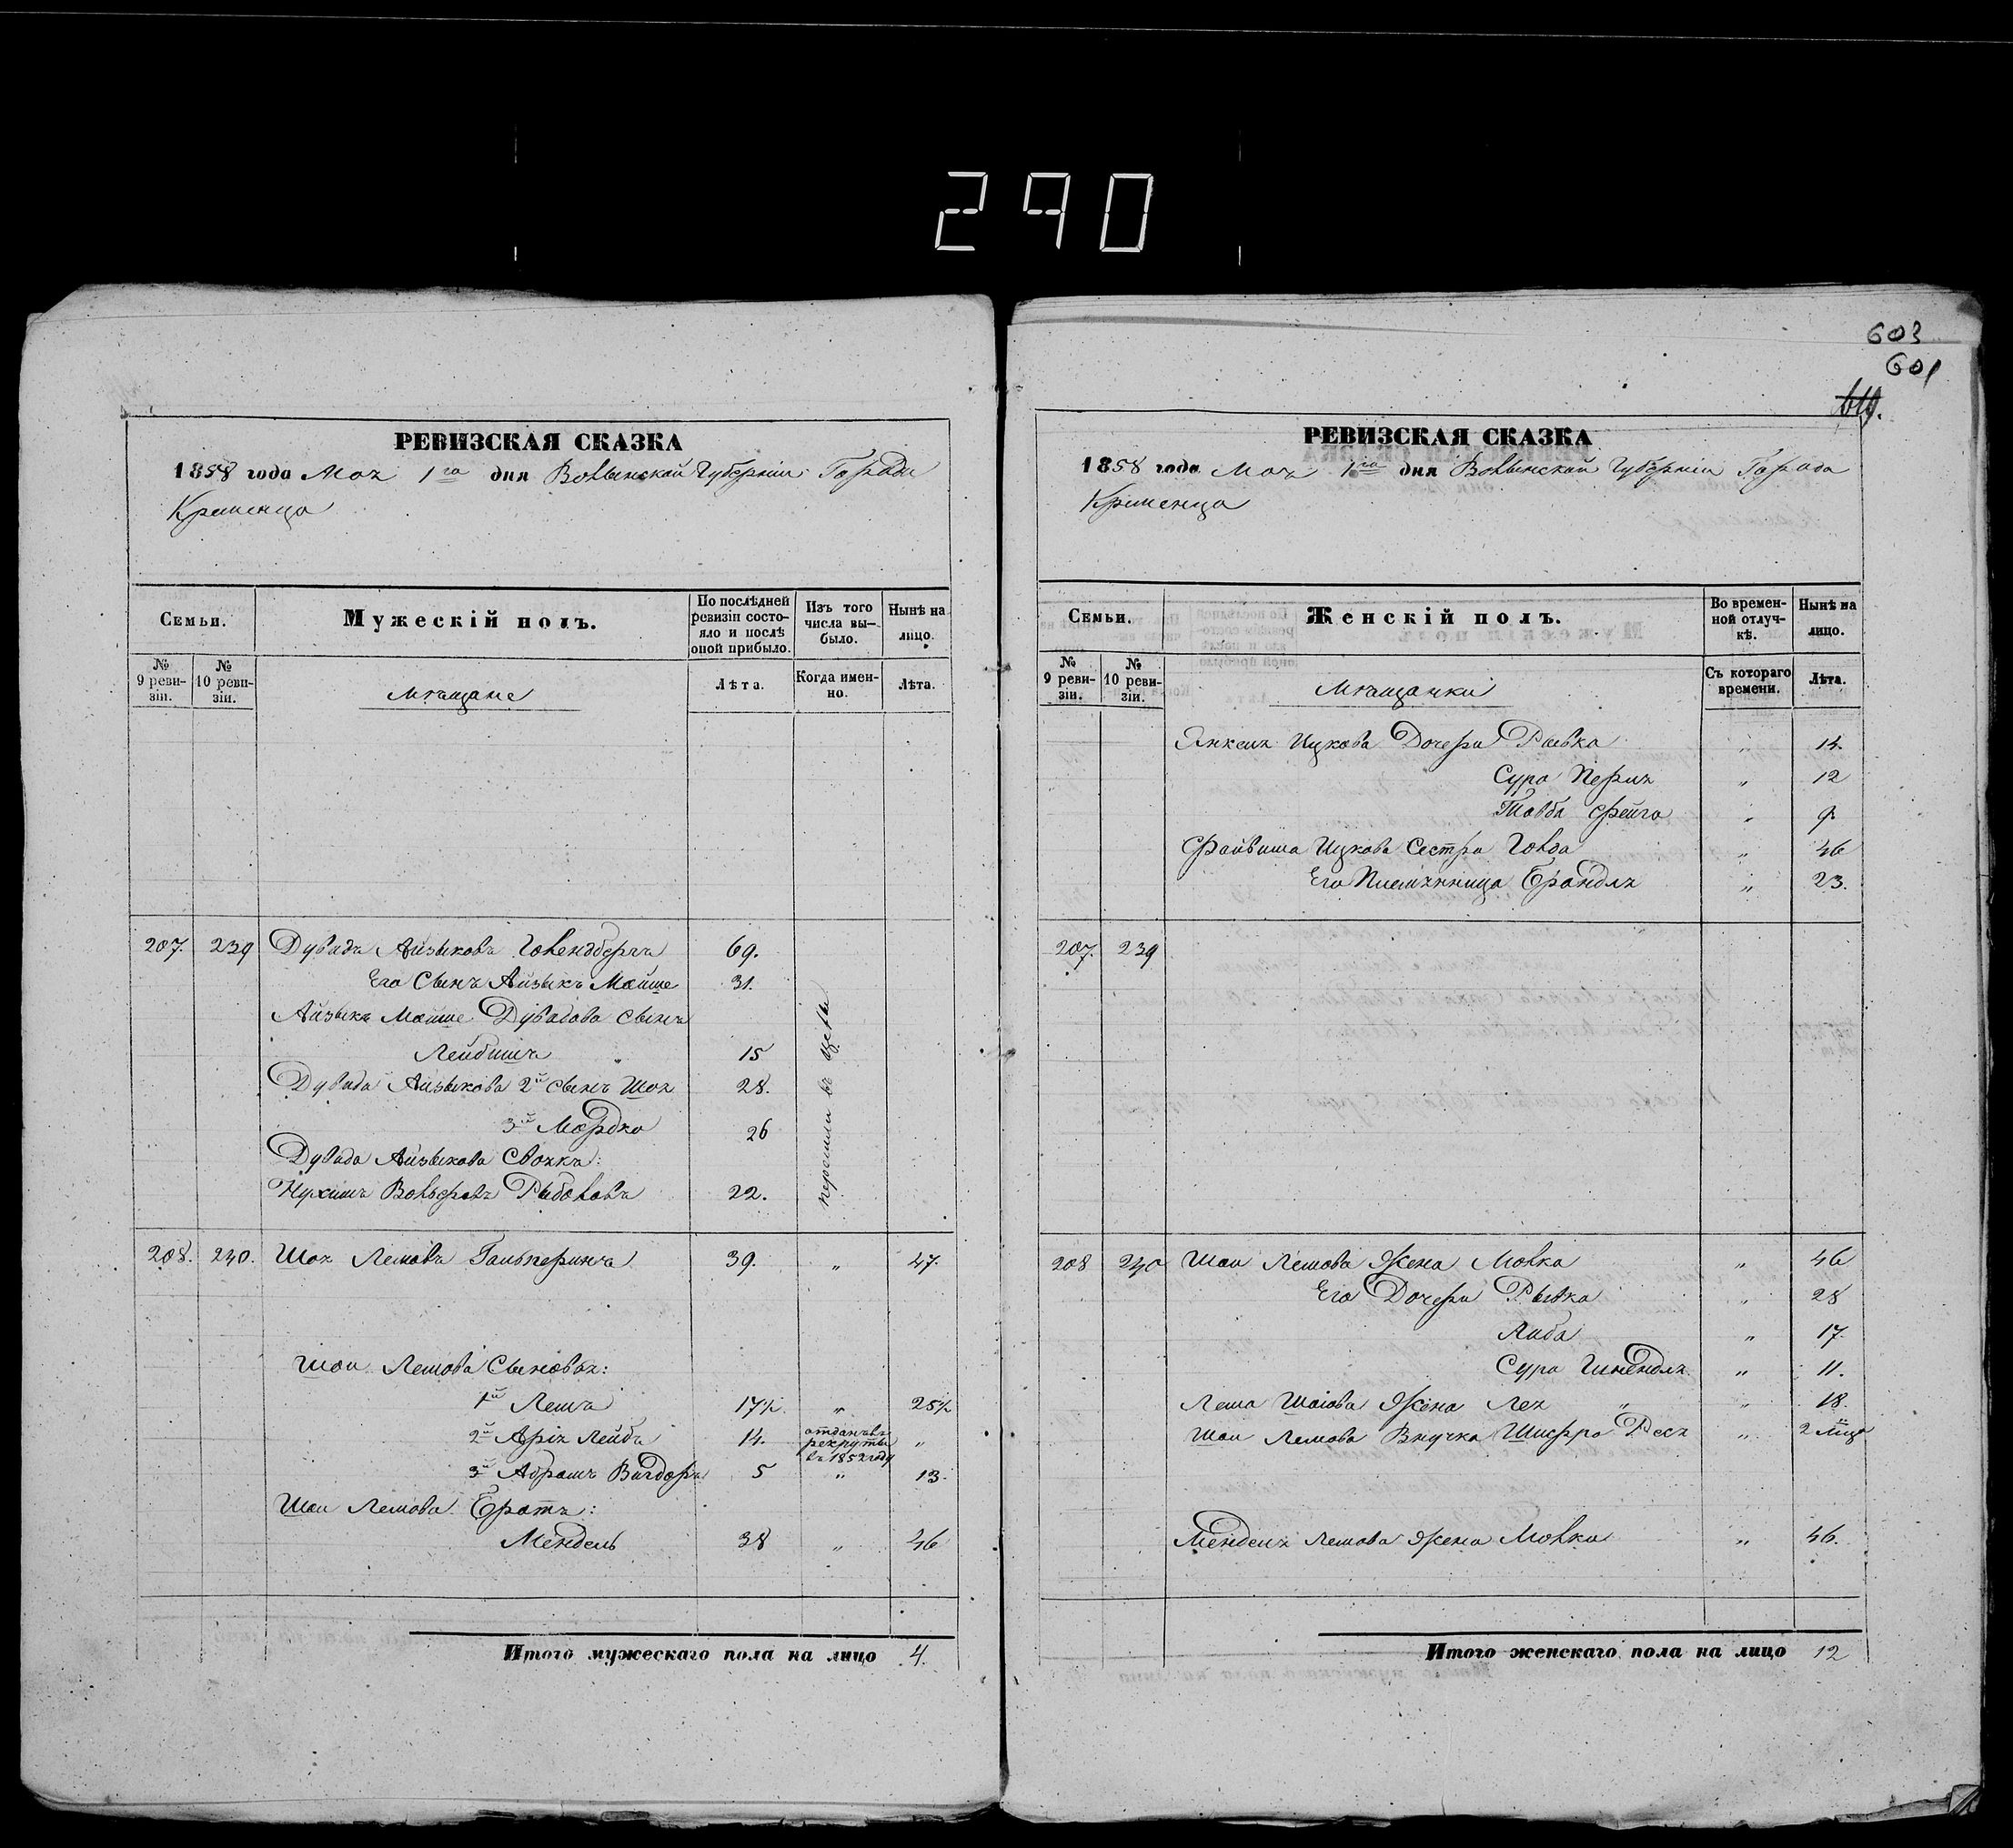 290
603
601
РЕВИЗСКАЯ СКАЗКА
1858 года Мая 1го дня Волынской Губерніи Города
Кременца
Семьи.
Мужескій полъ.
По послѣдней ревизіи состояло и послѣ оной прибыло.
Изъ того числа выбыло.
Нынѣ на лицо.
№ 9 ревизіи.
№ 10 ревизіи.
мѣщане
Лѣта.
Когда именно.
Лѣта.
207. 239 Дувидъ Айзыковъ Гольдбергъ 69.
Его Сынъ Айзыкъ Мойше 31.
Айзыка Мойше Дувидова сынъ
Лейбишъ 15
Дувида Айзыкова 2й сынъ Шоя 28.
3й Мордко 26
Дувида Айзыкова Своякъ:
Нухимъ Вольфовъ 22.
208. 240. Шоя Лемовъ Гальперинъ 39. „ 47.
Шои Лемова Сыновья:
1й Лема 17½ „ 25½
2й Арія Лейбъ 14. отданъ въ рекруты въ 1852 году „
3й Абрамъ Вигдоръ 5 „ 13.
Шои Лемова Братъ:
Мендель 38 „ 46
Итого мужескаго пола на лицо 4.
РЕВИЗСКАЯ СКАЗКА
1858 года Мая 1го дня Волынской Губерніи Города
Кременца
Семьи.
Женскій полъ.
Во временной отлучкѣ.
Нынѣ на лицо.
№ 9 ревизіи.
№ 10 ревизіи.
мѣщанки
Съ котораго времени.
Лѣта.
Янкеля Ицкова Дочери Рывка „ 14.
Сура Перля „ 12
Товба Фейга „ 9.
Файвиша Ицкова Сестра Голда „ 46
Его Племянница Брандля „ 23.
207. 239
208 240 Шои Лемова Жена Молка „ 46
Его Дочери Рывка „ 28
Либа „ 17.
Сура Шнендля „ 11.
Лема Шоіова Жена Лея „ 18.
Шои Лемова Внучка Шифра Реся „ 2
Менделя Лемова Жена Молка „ 46.
Итого женскаго пола на лицо 12